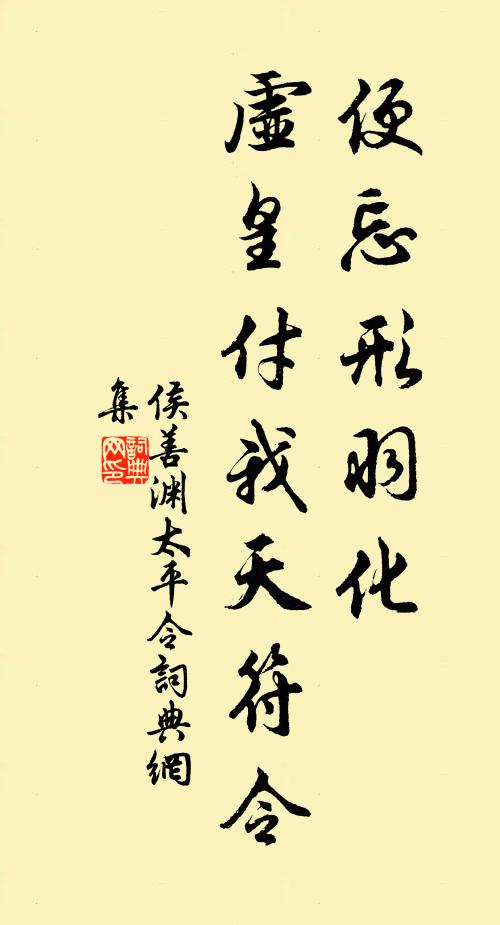 便忘形羽化
虛皇付我天符令
侯善渊太平令詞典網
集
詞典网印